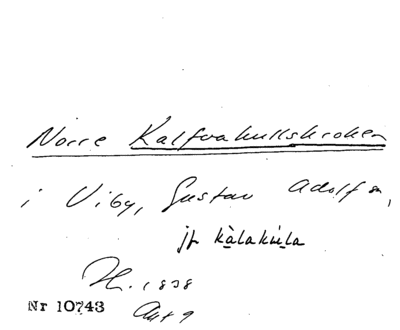 Norre Kalfvahullskroken
i Viby, Gustav Adolf sn,
jf kàlakùla
H. 1838
Nr 10743 Akt 9